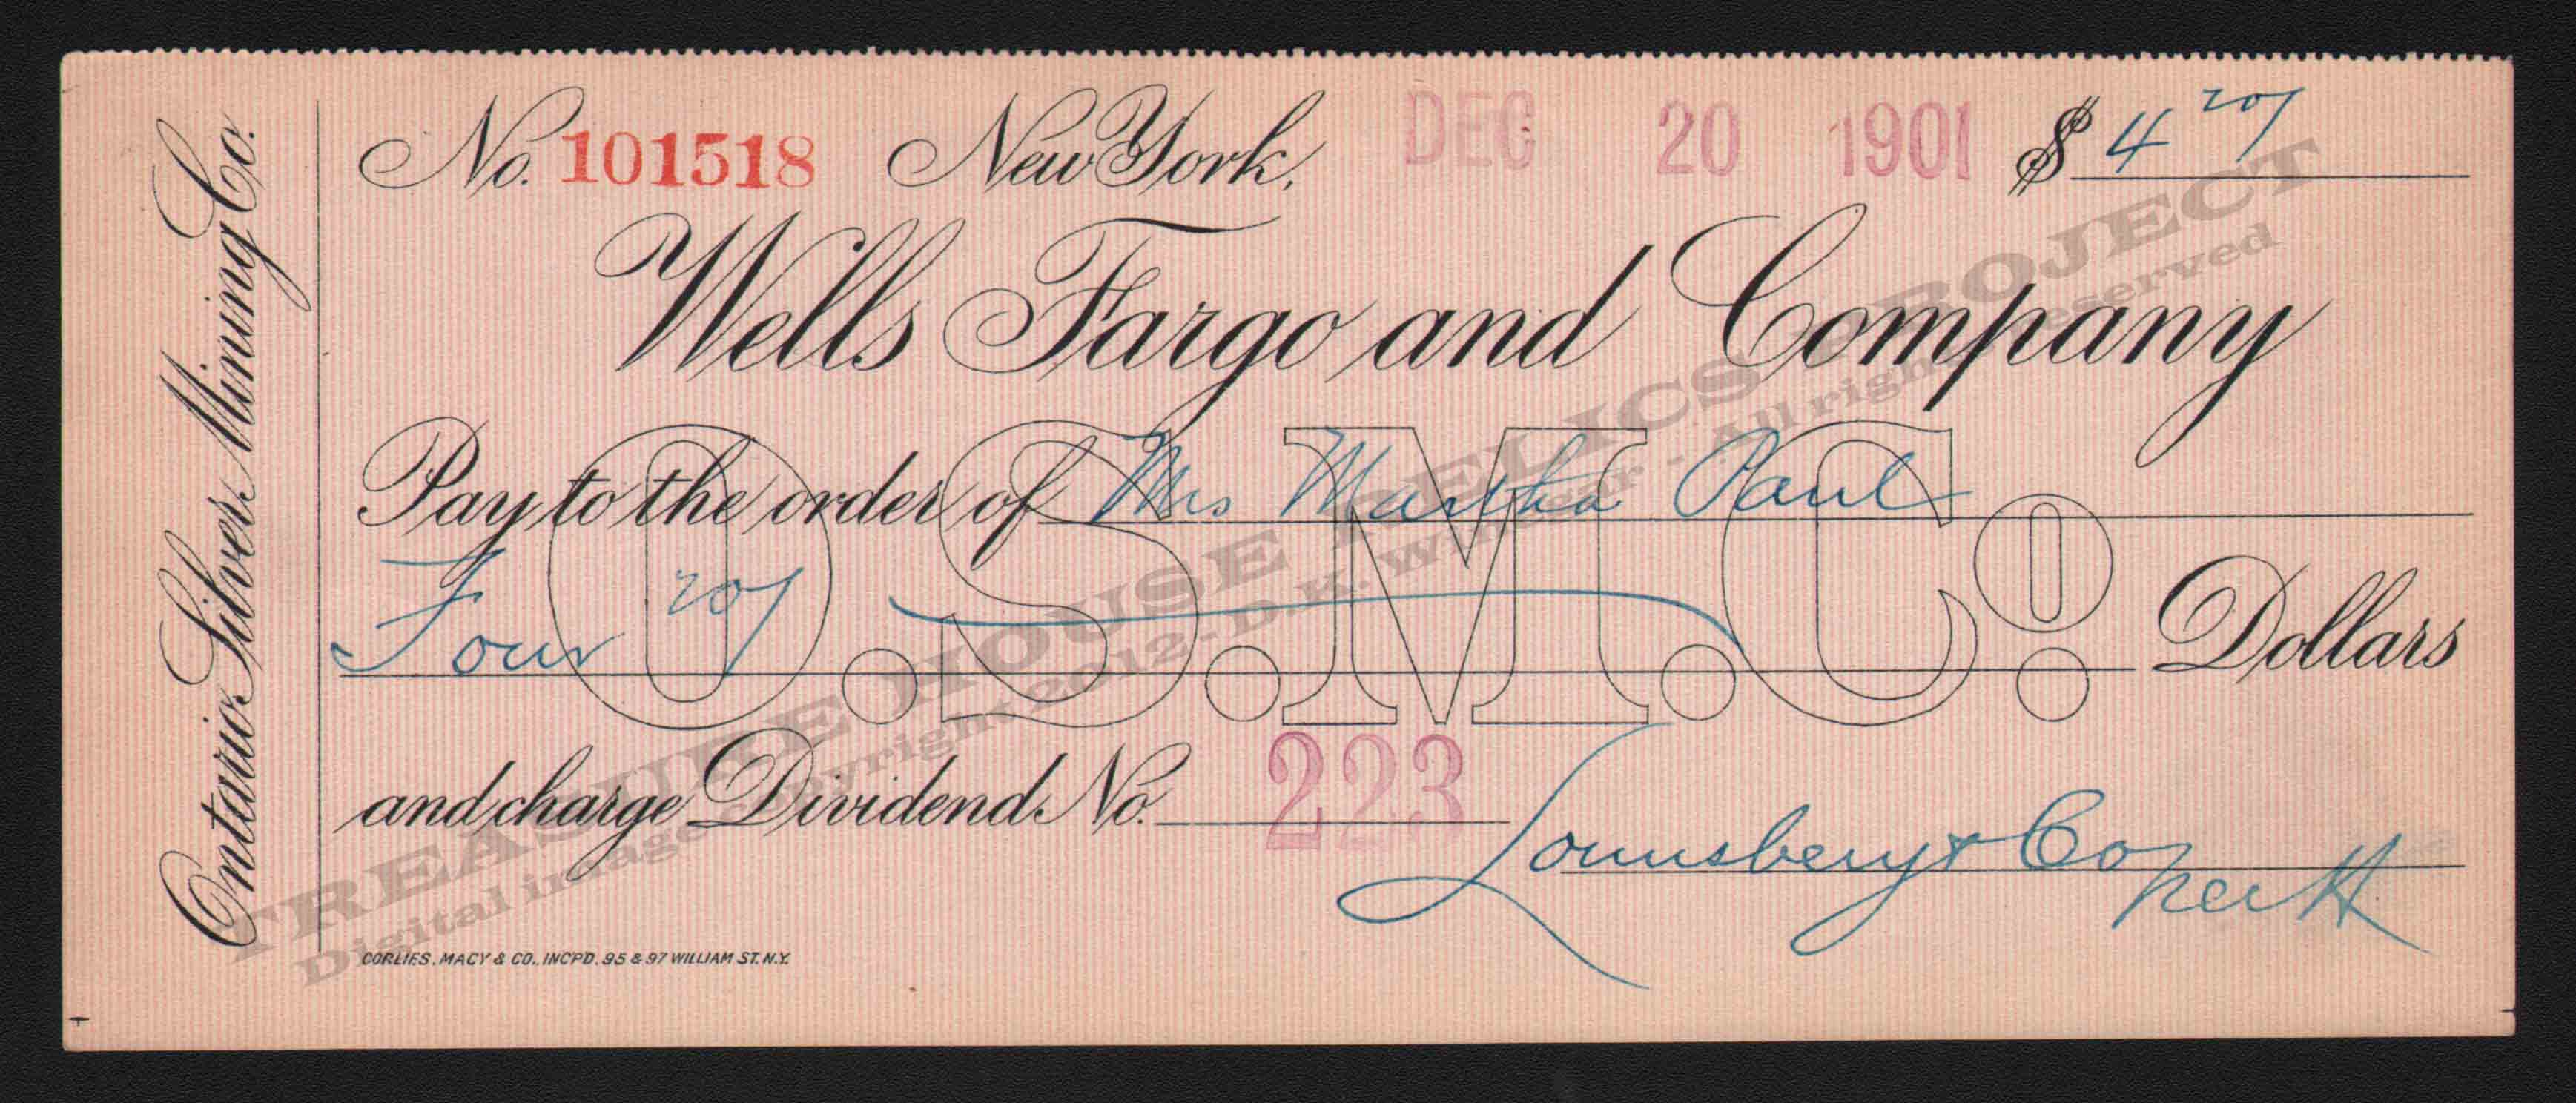 Ontario Silver Mining Co.
No. 101518 New York, DEC 20 1901 $ 4 20/
Wells Fargo and Company
Pay to the order of Mrs Martha Paul
Four 20/ Dollars
O.S.M.Co.
and charge Dividend No. 223
Lounsbery & Co
per H
CORLIES, MACY & CO., INCP'D. 95 & 97 WILLIAM ST. N.Y.
TREASURE HOUSE RELICS PROJECT
Digital image copyright 2012 - D.K. Winslar - All rights reserved